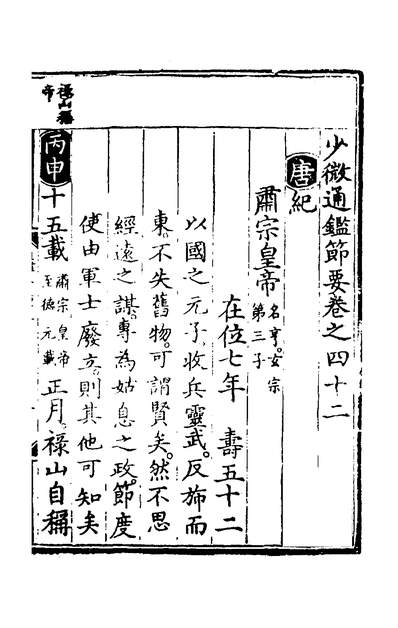 少微通鑑節要卷之四十二
唐紀
肅宗皇帝 名亨。玄宗
第三子
在位七年 壽五十二
以國之元子。收兵靈武。反旆而
東。不失舊物。可謂賢矣。然不思
經遠之謀。專為姑息之政。節度
使由軍士廢立。則其他可知矣
祿山稱
帝
丙申 十五載 肅宗皇帝
至德元載 正月。祿山自稱